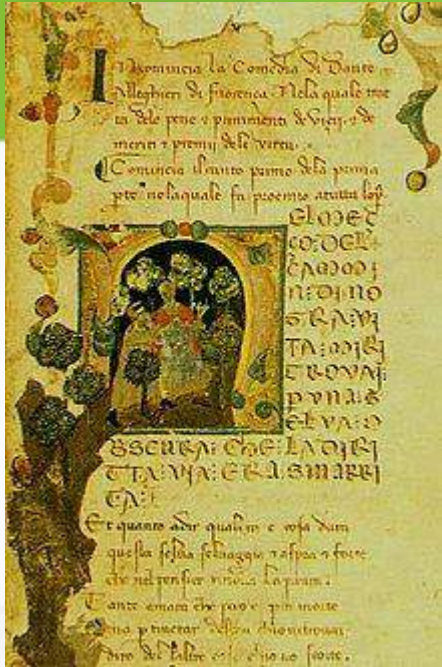 Inchomincia la Comedia di Dante
Alleghieri di fiorenca. Nela quale trac
ta dele pene e punimenti de vicij. e de
meriti e premij dele virtu.
Comincia il canto primo dela prima
pte nelaquale fa proemio atutta lop
EL MEC
CO DEL
CAMMI
N: DI NO
STRA: VI
TA: MIRI
TROVAI
P VNA: S
ELVA: O
BSCURA: CHE: LA DIRI
TTA: VIA: ERA: SMARRI
TA:
Et quanto adir qual era e cosa dura
questa selva selvaggia e aspra e forte
che nel pensier
Tanto amara che poco e piu morte
ma p tractar del
diro de laltre cose